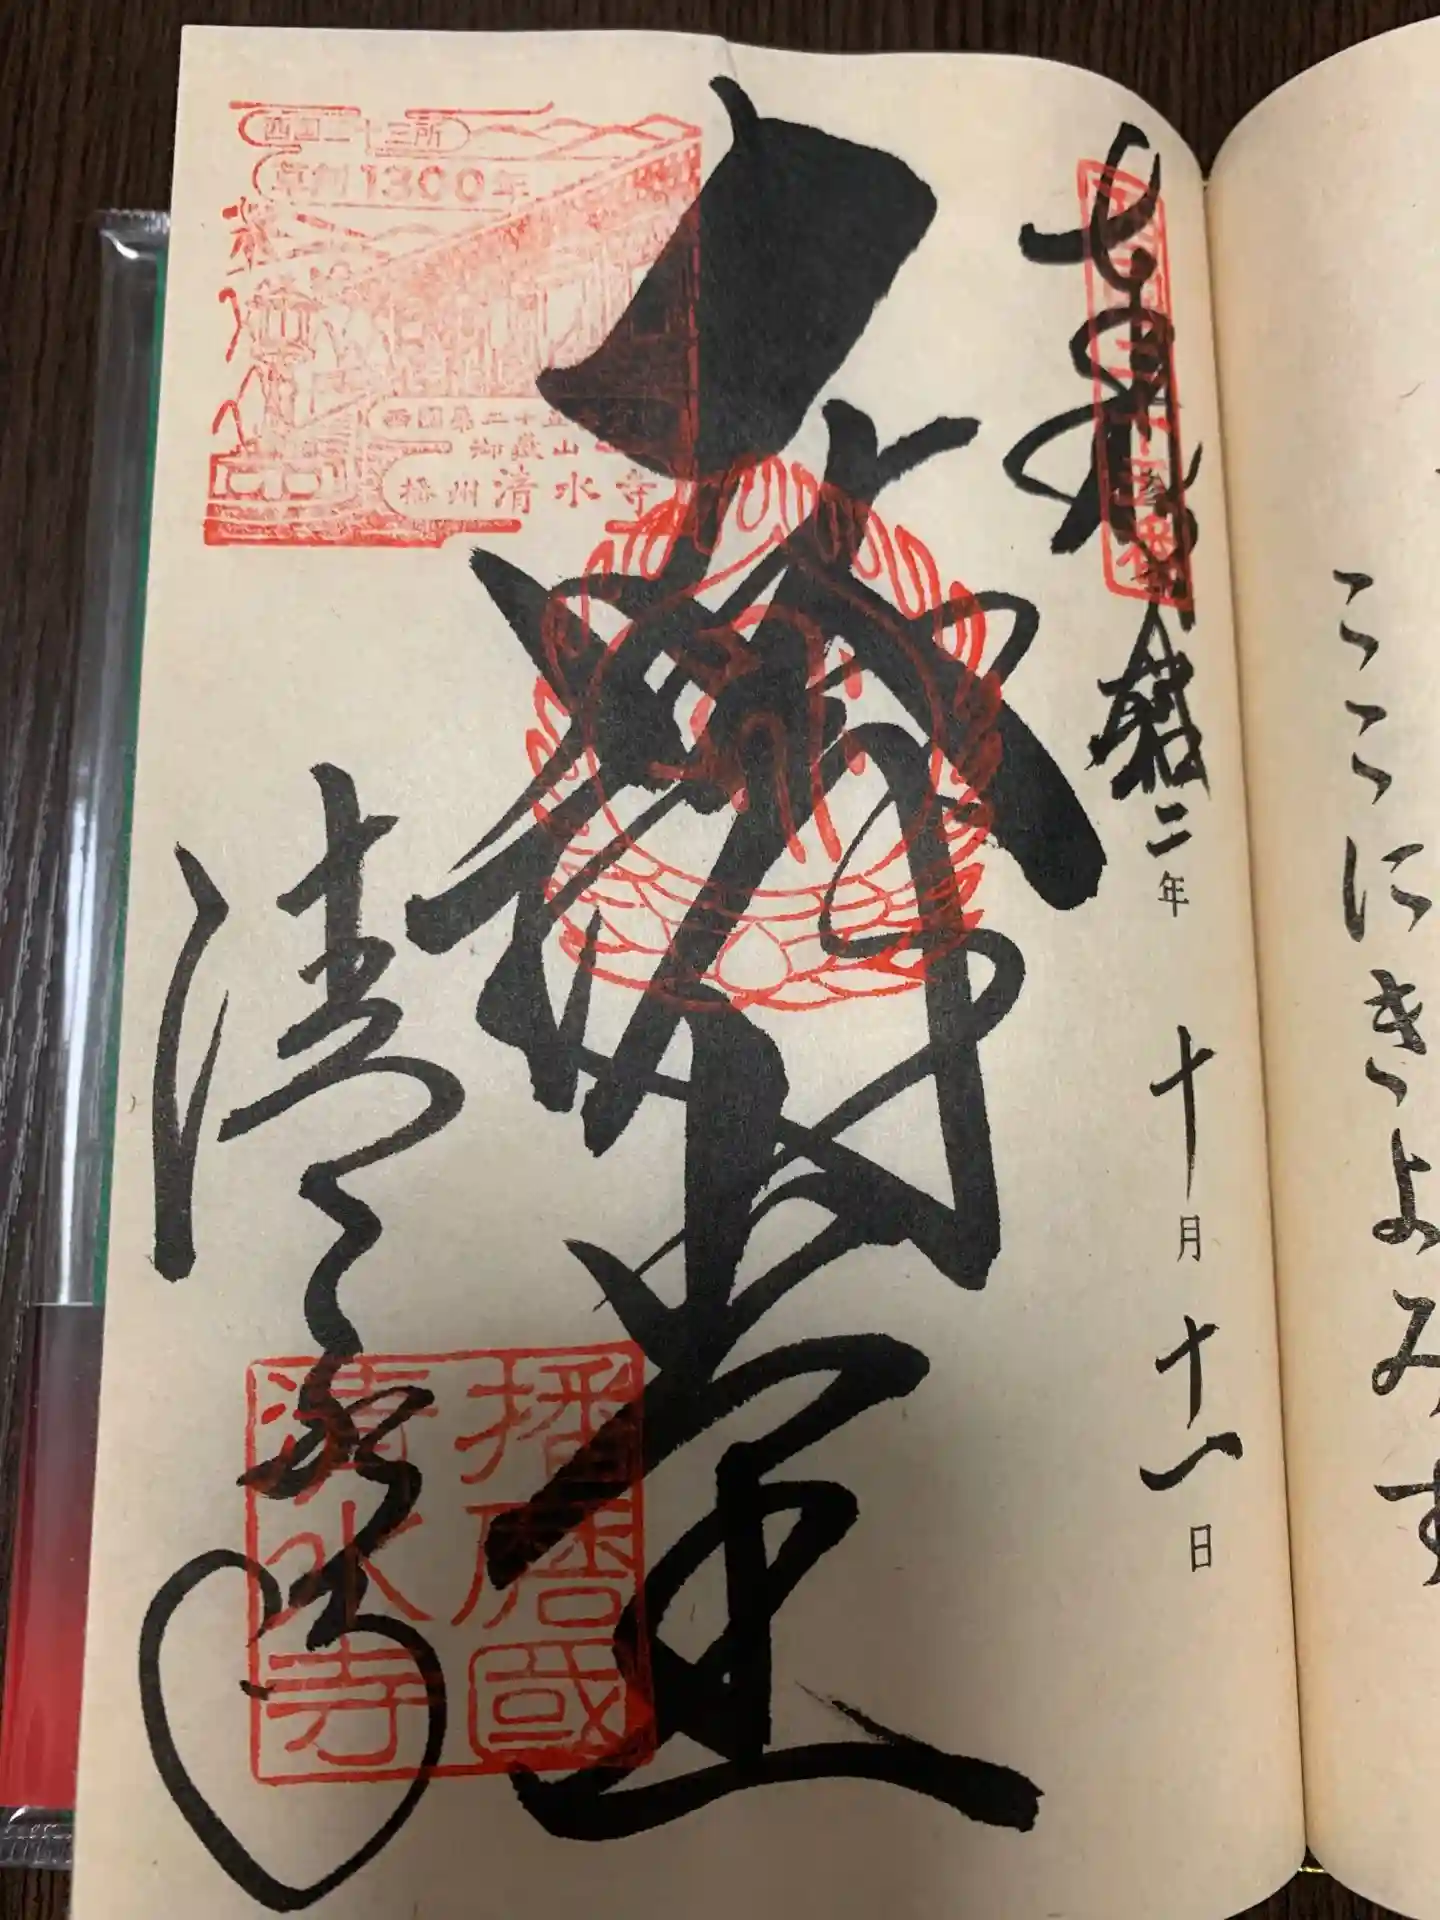 ここにきよみす
奉拝 令和二年 十月十一日
大講堂
清水寺
西国三十三所
草創1300年
西國第二十五
御嶽山
播州清水寺
播磨國
清水寺